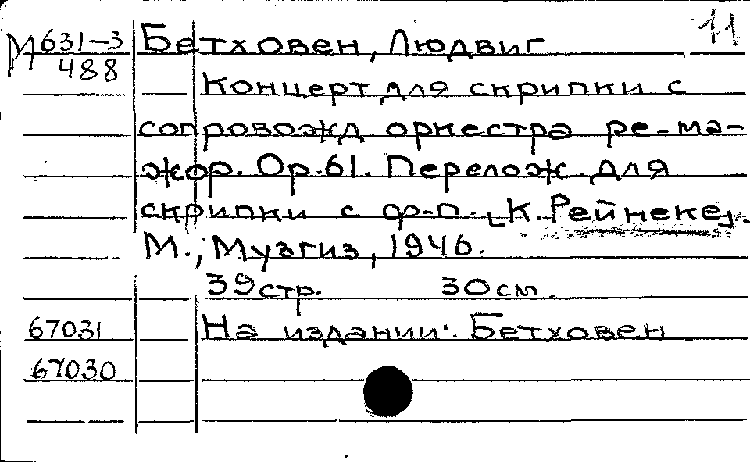 11
М 631-3 Бетховен, Людвиг
488
Концерт для скрипки с
сопровожд оркестра ре-ма-
жор. Ор.61. Перелож. для
скрипки с ф-п. [К. Рейнеке].
М., Музгиз, 1946.
39стр. 30см.
67031 На издании: Бетховен
67030